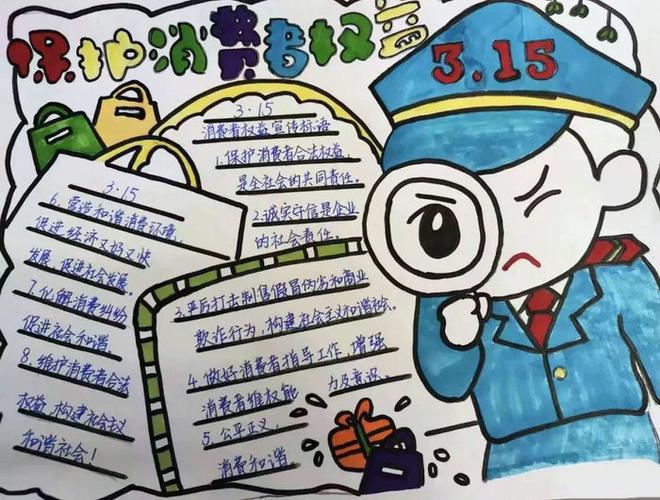 保护消费者权益
3.15
3·15
消费者权益宣传标语
1.保护消费者合法权益,
是全社会的共同责任。
2.诚实守信是企业
的社会责任。
3.严厉打击制售假冒伪劣和商业
欺诈行为,构建社会主义和谐社会。
4.做好消费者指导工作,增强
消费者维权能
力及意识。
5.公平正义,
消费和谐
3·15
6.营造和谐消费环境,
促进经济又好又快
发展,促进社会发展。
7.化解消费纠纷
促进社会和谐
8.维护消费者合法
权益,构建社会主义
和谐社会!
3.15